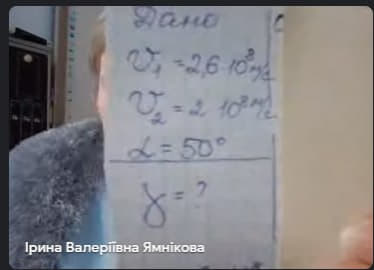 Дано
V₁ = 2,6·10⁸ м/с
V₂ = 2 10⁸ м/с
α = 50°
γ = ?
Ірина Валеріївна Ямнікова